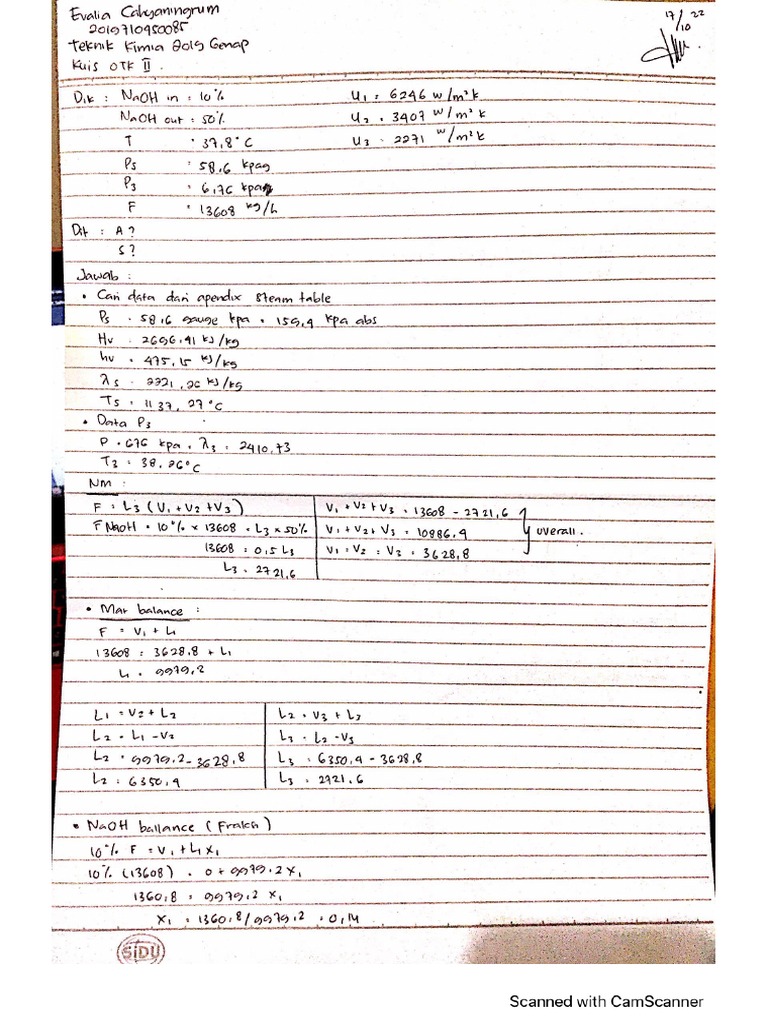 Evalia Cahyaningrum
2019710950085
Teknik Kimia 2019 Genap
Kuis OTK II.
17/10 22
Dik : NaOH in = 10%
U1 = 6246 w/m²k
NaOH out = 50%
U2 = 3407 w/m²k
T = 37,8°C
U3 = 2271 w/m²k
Ps = 58,6 kpag
P3 = 6,76 kpa
F = 13608 kg/h
Dit : A?
S?
Jawab :
• Cari data dari apendix steam table
Ps = 58,6 gauge kpa = 159,9 kpa abs
Hv = 2696,41 kJ/kg
hv = 475,15 kJ/kg
λs = 2221,26 kJ/kg
Ts = 1137,27°C
• Data P3
P = 676 kpa, λ3 = 2410,73
T3 = 38,26°C
NM :
F = L3 (V1+V2+V3)
F NaOH = 10% x 13608 = L3 x 50%
13608 = 0,5 L3
L3 = 2721,6
V1 + V2 + V3 = 13608 - 2721,6
V1 + V2 + V3 = 10886,4
V1 = V2 = V3 = 3628,8
overall.
• Mat balance :
F = V1 + L1
13608 = 3628,8 + L1
L1 = 9979,2
L1 = V2 + L2
L2 = L1 - V2
L2 = 9979,2 - 3628,8
L2 = 6350,4
L2 = V3 + L3
L3 = L2 - V3
L3 = 6350,4 - 3628,8
L3 = 2721,6
• NaOH ballance (Fraksi)
10% F = V1 + L1 x1
10% (13608) = 0 + 9979,2 x1
1360,8 = 9979,2 x1
x1 = 1360,8/9979,2 = 0,14
SIDU
Scanned with CamScanner